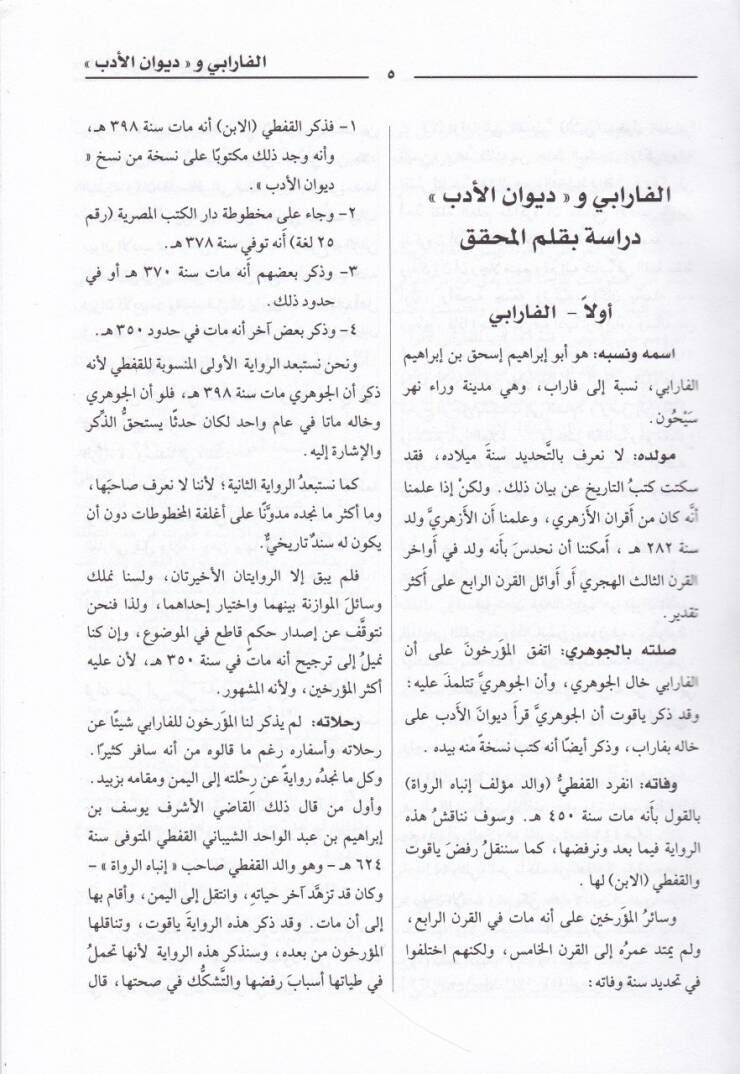 الفارابي و « ديوان الأدب »
٥
الفارابي و « ديوان الأدب »
دراسة بقلم المحقق
أولاً – الفارابي
اسمه ونسبه: هو أبو إبراهيم إسحق بن إبراهيم
الفارابي، نسبة إلى فاراب، وهي مدينة وراء نهر
سَيْحُون.
مولده: لا نعرف بالتَّحديد سنةَ ميلاده، فقد
سكتت كتبُ التاريخ عن بيان ذلك. ولكنْ إذا علمنا
أنَّه كان من أقران الأزهري، وعلمنا أن الأزهريَّ ولد
سنة ٢٨٢ هـ ، أمكننا أن نحدسَ بأنه ولد في أواخر
القرن الثالث الهجري أو أوائل القرن الرابع على أكثر
تقدير.
صلته بالجوهري: اتفق المؤرخونَ على أن
الفارابي خال الجوهري، وأن الجوهريَّ تتلمذَ عليه:
وقد ذكر ياقوت أن الجوهريَّ قرأ ديوانَ الأدب على
خاله بفاراب، وذكر أيضًا أنه كتب نسخةً منه بيده .
وفاته: انفرد القفطيُّ (والد مؤلف إنباه الرواة)
بالقول بأنه مات سنة ٤٥٠ هـ. وسوف نناقشُ هذه
الرواية فيما بعد ونرفضها، كما سننقلُ رفضَ ياقوت
والقفطي (الابن) لها .
وسائرُ المؤرخين على أنه مات في القرن الرابع،
ولم يمتد عمرُه إلى القرن الخامس، ولكنهم اختلفوا
في تحديد سنة وفاته:
١- فذكر القفطي (الابن) أنه مات سنة ٣٩٨ هـ،
وأنه وجد ذلك مكتوبًا على نسخة من نسخ «
ديوان الأدب » .
٢- وجاء على مخطوطة دار الكتب المصرية (رقم
٢٥ لغة) أنه توفي سنة ٣٧٨ هـ.
٣- وذكر بعضهم أنه مات سنة ٣٧٠ هـ أو في
حدود ذلك.
٤- وذكر بعض آخر أنه مات في حدود ٣٥٠ هـ.
ونحن نستبعد الرواية الأولى المنسوبة للقفطي لأنه
ذكر أن الجوهري مات سنة ٣٩٨ هـ، فلو أن الجوهري
وخاله ماتا في عام واحد لكان حدثًا يستحقُّ الذِّكر
والإشارة إليه .
كما نستبعدُ الرواية الثانية؛ لأننا لا نعرف صاحبَها،
وما أكثر ما نجده مدوَّنًا على أغلفة المخطوطات دون أن
يكون له سندٌ تاريخيٌّ.
فلم يبق إلا الروايتان الأخيرتان، ولسنا نملك
وسائلَ الموازنة بينهما واختيار إحداهما، ولذا فنحن
نتوقَّف عن إصدار حكمٍ قاطع في الموضوع، وإن كنا
نميلُ إلى ترجيح أنه ماتَ في سنة ٣٥٠ هـ، لأن عليه
أكثر المؤرخين، ولأنه المشهور.
ورحلاته: لم يذكر لنا المؤرخون للفارابي شيئًا عن
رحلاته وأسفاره رغم ما قالوه من أنه سافر كثيرًا.
وكل ما نجدُه روايةٌ عن رِحْلته إلى اليمن ومقامه بزبيد.
وأول من قال ذلك القاضي الأشرف يوسف بن
إبراهيم بن عبد الواحد الشيباني القفطي المتوفى سنة
٦٢٤ هـ - وهو والد القفطي صاحب « إنباه الرواة » –
وكان قد تزهَّد آخر حياتِه، وانتقل إلى اليمن، وأقام بها
إلى أن مات. وقد ذكر هذه الروايةَ ياقوت، وتناقلها
المؤرخون من بعده، وسنذكر هذه الرواية لأنها تحملُ
في طياتها أسبابَ رفضها والتَّشكُّك في صحتها، قال